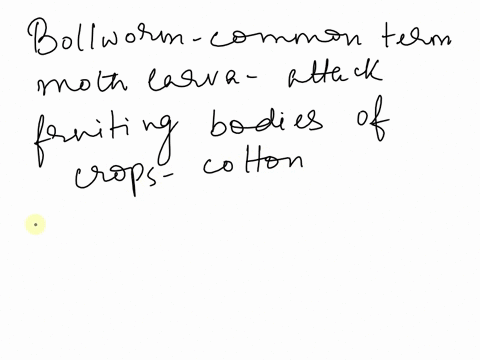 Bollworm-common term
moth larva- attack
fruiting bodies of
crops- cotton